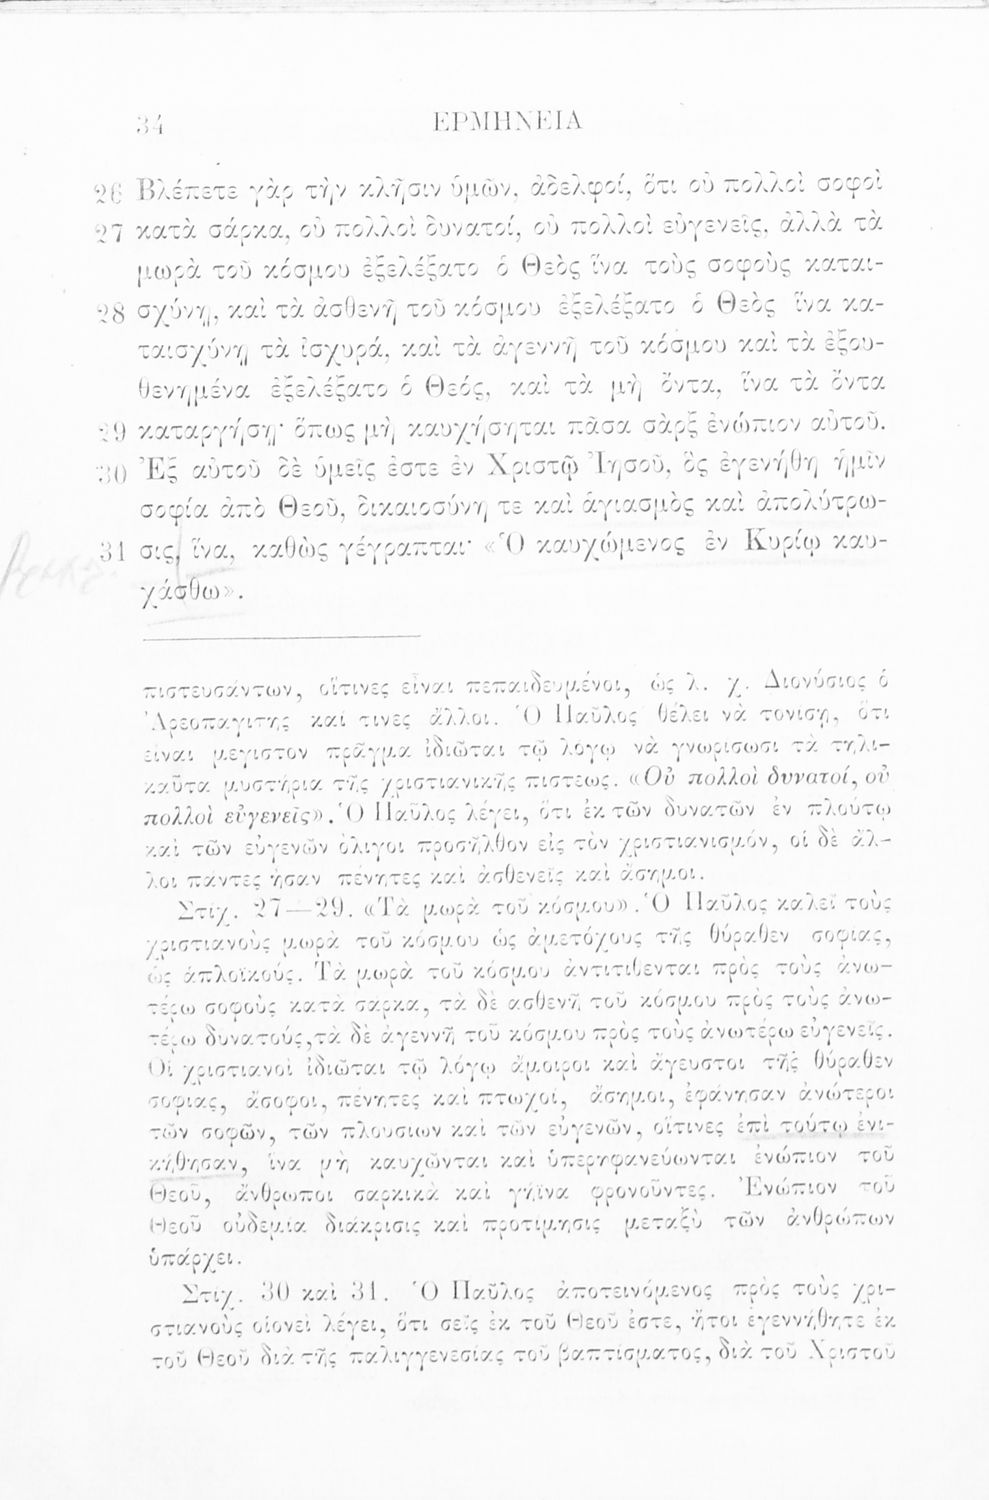 34 ΕΡΜΗΝΕΙΑ
26 Βλέπετε γὰρ τὴν κλῆσιν ὑμῶν, ἀδελφοί, ὅτι οὐ πολλοὶ σοφοὶ
27 κατὰ σάρκα, οὐ πολλοὶ δυνατοί, οὐ πολλοὶ εὐγενεῖς, ἀλλὰ τὰ
μωρὰ τοῦ κόσμου ἐξελέξατο ὁ Θεὸς ἵνα τοὺς σοφοὺς καται-
28 σχύνῃ, καὶ τὰ ἀσθενῆ τοῦ κόσμου ἐξελέξατο ὁ Θεὸς ἵνα κα-
ταισχύνῃ τὰ ἰσχυρά, καὶ τὰ ἀγεννῆ τοῦ κόσμου καὶ τὰ ἐξου-
θενημένα ἐξελέξατο ὁ Θεός, καὶ τὰ μὴ ὄντα, ἵνα τὰ ὄντα
29 καταργήσῃ· ὅπως μὴ καυχήσηται πᾶσα σὰρξ ἐνώπιον αὐτοῦ.
30 Ἐξ αὐτοῦ δὲ ὑμεῖς ἐστε ἐν Χριστῷ Ἰησοῦ, ὃς ἐγενήθη ἡμῖν
σοφία ἀπὸ Θεοῦ, δικαιοσύνη τε καὶ ἁγιασμὸς καὶ ἀπολύτρω-
31 σις, ἵνα, καθὼς γέγραπται· «Ὁ καυχώμενος ἐν Κυρίῳ καυ-
χάσθω».
πιστευσάντων, οἵτινες εἶναι πεπαιδευμένοι, ὡς λ. χ. Διονύσιος ὁ
Ἀρεοπαγίτης καί τινες ἄλλοι. Ὁ Παῦλος θέλει νὰ τονίσῃ, ὅτι
εἶναι μέγιστον πρᾶγμα ἰδιῶται τῷ λόγῳ νὰ γνωρίσωσι τὰ τηλι-
καῦτα μυστήρια τῆς χριστιανικῆς πίστεως. «Οὐ πολλοὶ δυνατοί, οὐ
πολλοὶ εὐγενεῖς». Ὁ Παῦλος λέγει, ὅτι ἐκ τῶν δυνατῶν ἐν πλούτῳ
καὶ τῶν εὐγενῶν ὀλίγοι προσῆλθον εἰς τὸν χριστιανισμόν, οἱ δὲ ἄλ-
λοι πάντες ἦσαν πένητες καὶ ἀσθενεῖς καὶ ἄσημοι.
Στίχ. 27—29. «Τὰ μωρὰ τοῦ κόσμου». Ὁ Παῦλος καλεῖ τοὺς
χριστιανοὺς μωρὰ τοῦ κόσμου ὡς ἀμετόχους τῆς θύραθεν σοφίας,
ὡς ἁπλοϊκούς. Τὰ μωρὰ τοῦ κόσμου ἀντιτίθενται πρὸς τοὺς ἀνω-
τέρω σοφοὺς κατὰ σάρκα, τὰ δὲ ἀσθενῆ τοῦ κόσμου πρὸς τοὺς ἀνω-
τέρω δυνατούς, τὰ δὲ ἀγεννῆ τοῦ κόσμου πρὸς τοὺς ἀνωτέρω εὐγενεῖς.
Οἱ χριστιανοὶ ἰδιῶται τῷ λόγῳ ἄμοιροι καὶ ἄγευστοι τῆς θύραθεν
σοφίας, ἄσοφοι, πένητες καὶ πτωχοί, ἄσημοι, ἐφάνησαν ἀνώτεροι
τῶν σοφῶν, τῶν πλουσίων καὶ τῶν εὐγενῶν, οἵτινες ἐπὶ τούτῳ ἐνι-
κήθησαν, ἵνα μὴ καυχῶνται καὶ ὑπερηφανεύωνται ἐνώπιον τοῦ
Θεοῦ, ἄνθρωποι σαρκικὰ καὶ γήϊνα φρονοῦντες. Ἐνώπιον τοῦ
Θεοῦ οὐδεμία διάκρισις καὶ προτίμησις μεταξὺ τῶν ἀνθρώπων
ὑπάρχει.
Στίχ. 30 καὶ 31. Ὁ Παῦλος ἀποτεινόμενος πρὸς τοὺς χρι-
στιανοὺς οἱονεὶ λέγει, ὅτι σεῖς ἐκ τοῦ Θεοῦ ἐστε, ἤτοι ἐγεννήθητε ἐκ
τοῦ Θεοῦ διὰ τῆς παλιγγενεσίας τοῦ βαπτίσματος, διὰ τοῦ Χριστοῦ